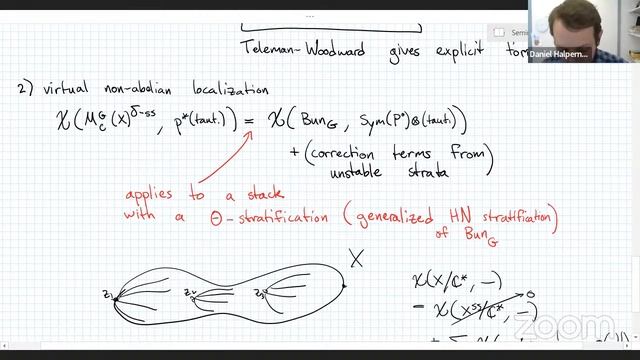 Semi
Daniel Halpern...
Teleman-Woodward gives explicit
2) virtual non-abelian localization
χ(M_C^G(X)^{δ-ss}, p*(taut.)) = χ(Bun_G, Sym(P°)⊗(taut.))
+ (correction terms from unstable strata)
applies to a stack
with a Θ-stratification (generalized HN stratification) of Bun_G
X
z₁ z₂ z₃
χ(X/ℂ*, -)
= χ(X^ss/ℂ*, -) 0
zoom